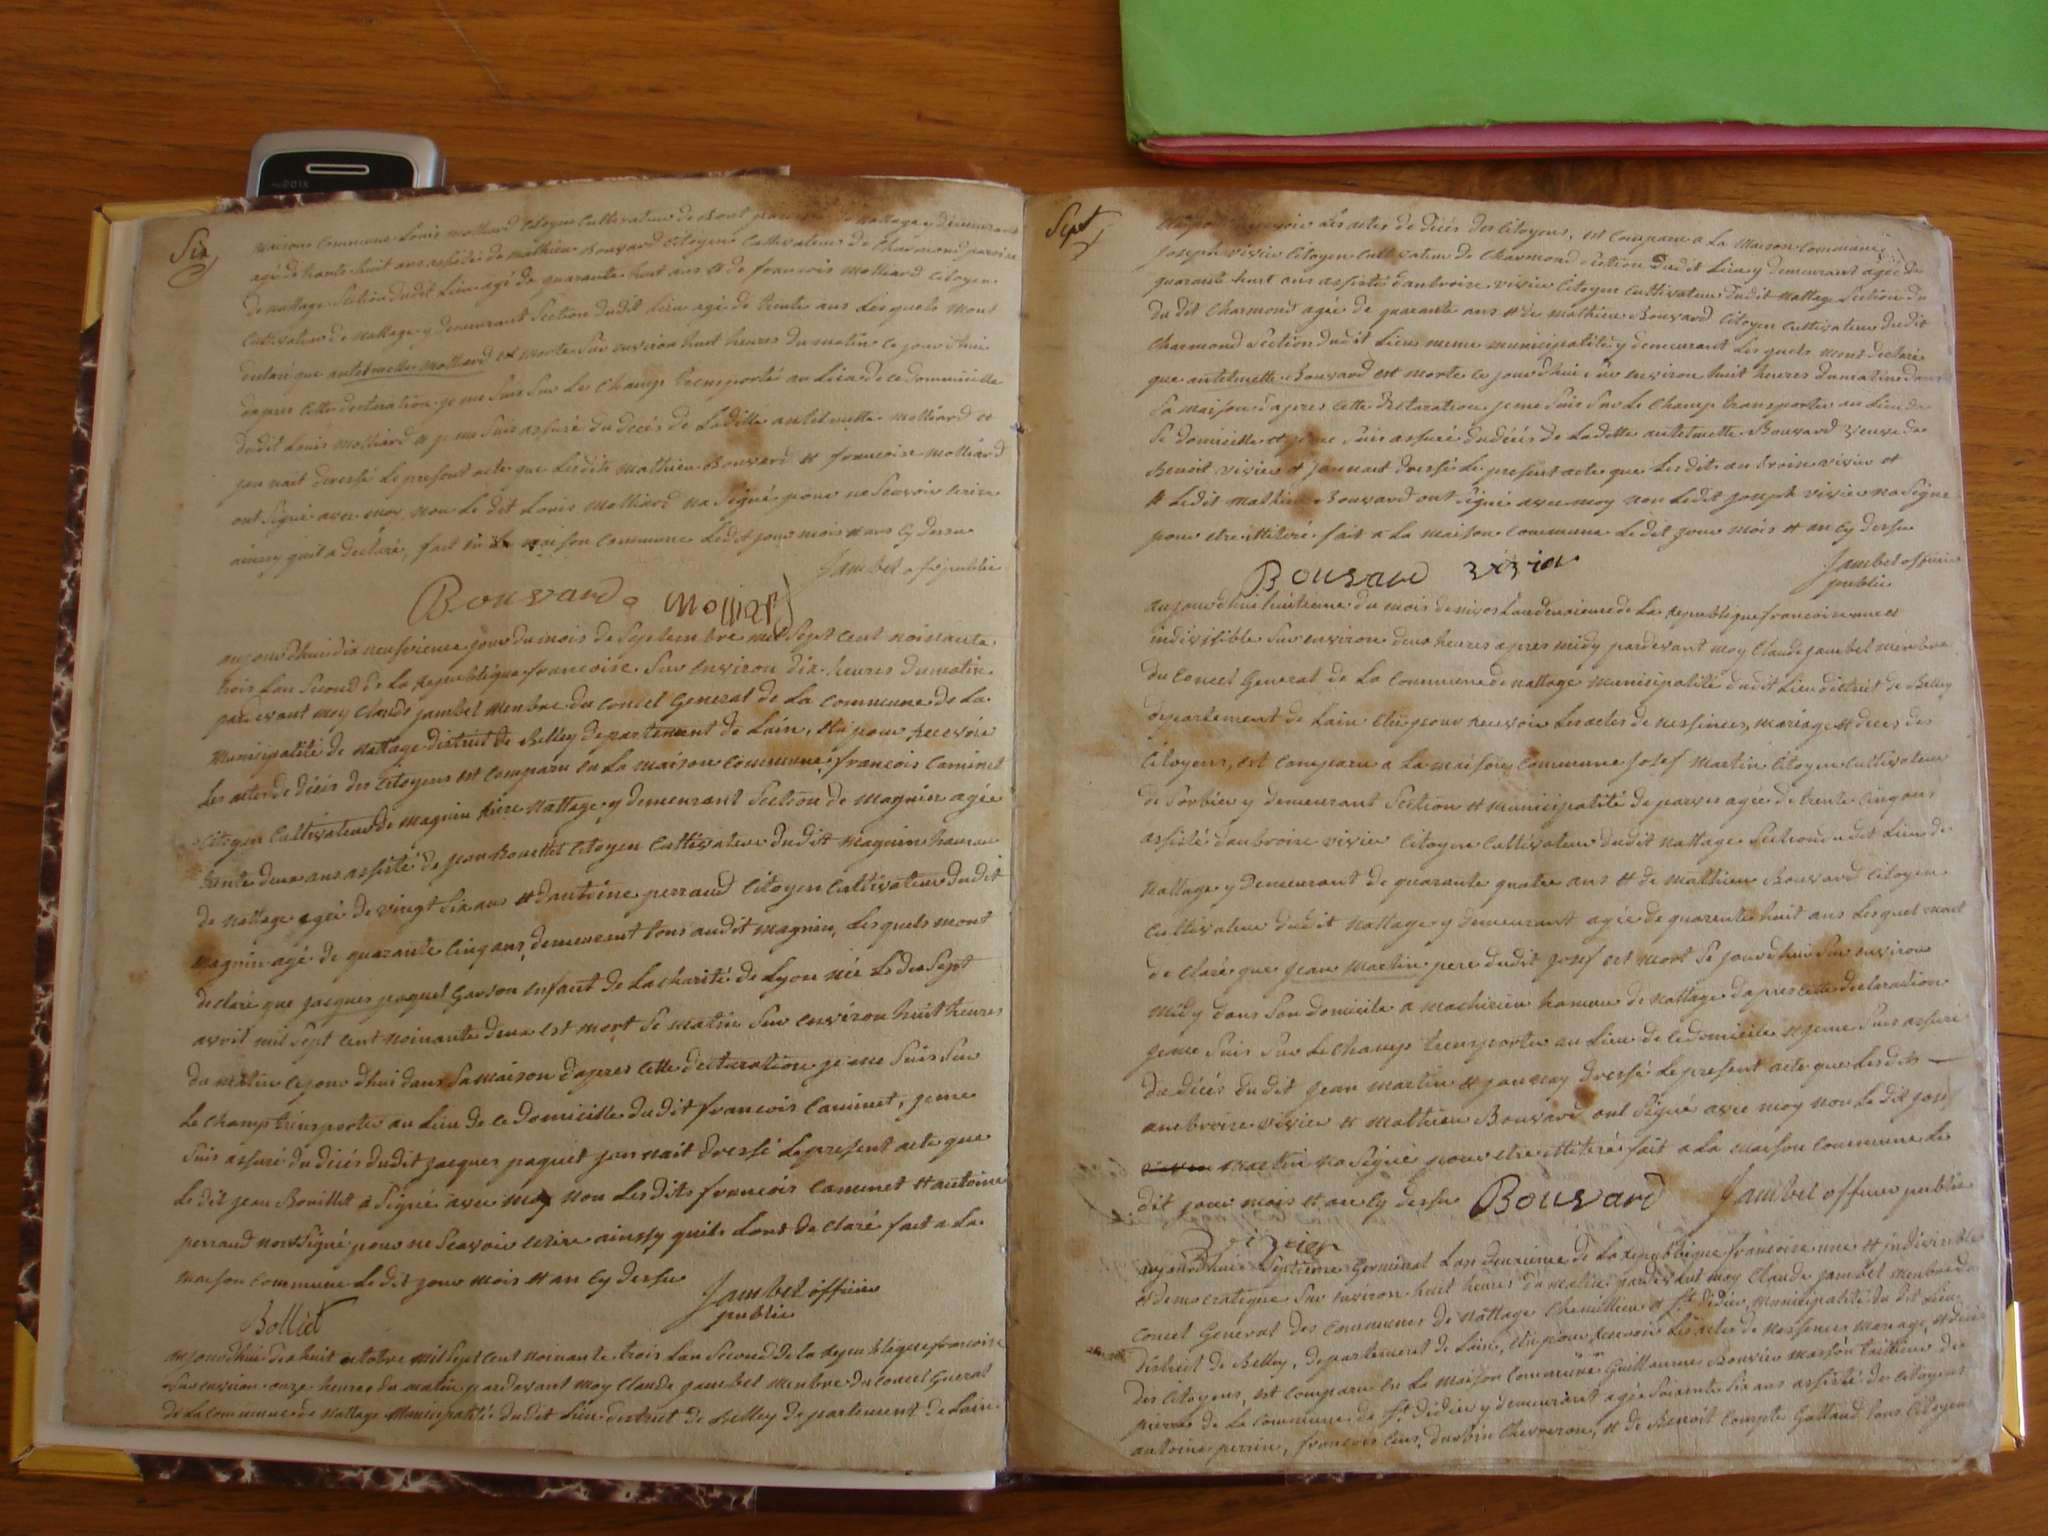 Six
maison commune Louis molliard Citoyen Cultivateur de nattage y demeurant
agé de trante huit ans assisté de mathieu Bouvard Citoyen Cultivateur de Charmond paroisse
de nattage Section dudit Lieu agé de quarante huit ans et de francois molliard Citoyen
Cultivateur de nattage y demeurant Section dudit Lieu agé de trente ans Lesquels mont
declaré que antelmette molliard est morte Sur environ huit heures du matin ce jourdhui
dapres cette declaration je me Suis Sur Le Champ transporté au Lieu de ce domicille
dudit Louis molliard et je me Suis assuré du décés de Laditte antelmette molliard et
jen nait dressé Le present acte que Lesdits mathieu Bouvard et francois molliard
ont Signé avec moy non Le dit Louis molliard na Signé pour ne Scavoir écrire
ainsy quil a declaré, fait en La maison commune Ledit jour mois et ans Cy dessu
Jambet of public
Bouvard molliard
aujourdhui dix neufvieme jour du mois de Septembre mil Sept cent noinante
trois Lan Second de La republique francoise Sur environ dix heures du matin
pardevant moy Claude jambet menbre du Concel General de La Commune de La
Municipalité de nattage district de Belley departement de Lain, élu pour recevoir
Les actes de décés des Citoyens est comparu en La maison Commune francois Caminet
Citoyen Cultivateur de magnin riere Nattage y demeurant Section de magnin agée
trente deux ans assisté de jean Bouillet Citoyen Cultivateur dudit magnin hameau
de nattage agé de vingt Six ans et dantoine perraud Citoyen Cultivateur dudit
magnin agé de quarante Cinq ans, demeurent tous audit magnin, Lesquels mont
declaré que jacques paquet Garson enfant de La charité de Lyon née Le dix Sept
avril mil Sept Cent noinante deux est mort Se matin Sur environ huit heures
du matin cejourdhui dans Sa maison dapres cette declaration je me Suis Sur
Le Champ transporter au Lieu de ce domicille dudit francois Caminet, je me
Suis assuré du décés dudit jacques paquet jen nait dressé Le present acte que
Le dit jean Bouillet a Signé avec moy non Lesdits francois Caminet et antoine
perraud non Signé pour ne Scavoir écrire ainssy quils Lont declaré fait a La
maison commune Le dit jour mois et an Cy dessu
Jambet officier
public
Bollict
aujourdhui dix huit octobre mil Sept cent noinante trois Lan Second de la republique francoise
Sur environ onze heures du matin pardevant moy Claude jambet menbre du Concel General
de La Commune de Nattage Municipalité dudit Lieu district de Belley departement de Lain
Sept
recevoir Les actes de décés des Citoyens, est comparu a La Maison commune
joseph vivier Citoyen Cultivateur de Charmond Section dudit Lieu y demeurant agée de
quarante huit ans assisté dambroise vivier Citoyen Cultivateur dudit nattage Section du
du dit Charmond agée de quarante ans et de mathieu Bouvard Citoyen Cultivateur dudit
Charmond Section dudit Lieu meme municipalité y demeurant Lesquels mont declaré
que antelmette Bouvard est morte ce jourdhui Sur environ huit heures du matin dans
Sa maison dapres cette declaration je me Suis Sur Le Champ transporter au Lieu de
Se domicille et je me Suis assuré du décés de Laditte antelmette Bouvard veuve de
Benoit vivier et jen nait dressé Le present acte que Lesdits ambroise vivier et
et Ledit mathieu Bouvard ont Signé avec moy non Ledit joseph vivier na Signé
pour etre illitéré fait a La maison commune Ledit jour mois et an Cy dessu
Jambet officier
public
Bouvard vivier
aujourdhui huitieme du mois de nivos Lan deuxieme de La republique francoise une et
indivisible Sur environ deux heures apres midy pardevant moy Claude jambet menbre
du Concel General de La Commune de nattage Municipalité dudit Lieu district de Belley
departement de Lain élu pour recevoir Les actes de nessences, mariage et deces des
Citoyens, est comparu a La maison Commune Josef Martin Citoyen Cultivateur
de Sorbier y demeurant Section et municipalité de parves agée de trente Cinq ans
assisté dambroise vivier Citoyen Cultivateur dudit nattage Section dudit Lieu de
Nattage y demeurant de quarante quatre ans et de mathieu Bouvard Citoyen
Cultivateur dudit nattage y demeurant agée de quarente huit ans Lesquel mont
declaré que jean martin pere dudit josef est mort Se jourdhui Sur environ
midy dans Son domicile a hameau de nattage dapres cette declaration
je me Suis Sur Le Champ transporter au Lieu de ce domicile et je me Suis assuré
du décés du dit jean martin et jen nay dressé Le present acte que Lesdits
ambroise vivier et mathieu Bouvard ont Signé avec moy non Le dit josef
martin na Signé pour etre illitéré fait a La maison commune Le
dit jour mois et an Cy dessu Bouvard Jambet officier public
vivier
aujourdhui Septieme Germinal Lan deuxieme de La republique francoise une et indivisible
et democratique Sur environ huit heures du matin pardevant moy Claude jambet menbre du
Concel General des Communes de nattage Chemillieu et St didier, Municipalité du dit Lieu
district de Belley, departement de Lain, élu pour recevoir Les actes de nessences mariage, et décés
des Citoyens, est comparu en La maison Commune Guillaume Bouvier masson tailleur de
pierres de La Commune de St didier y demeurant agée Soixante Six ans assisté de Citoyens
antoine perrin, francois Cieu, dudit Chevreron, et de Benoit Compte Galland tous Citoyens